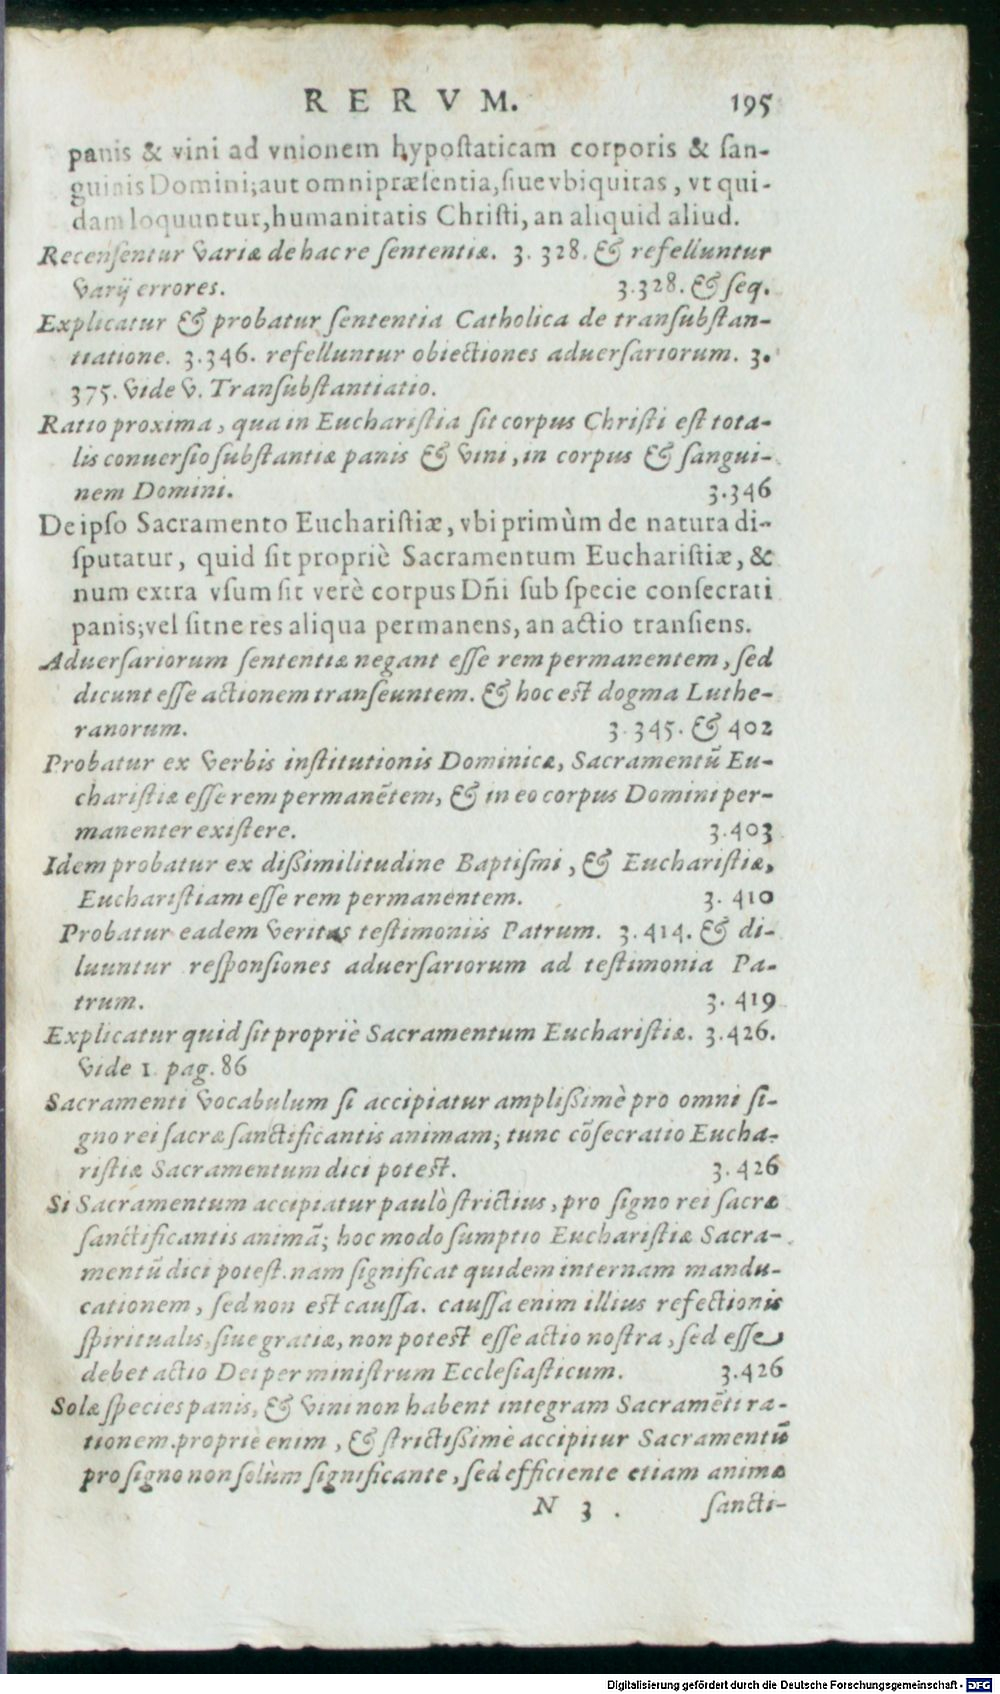 RERVM. 195
panis & vini ad vnionem hypoſtaticam corporis & ſan-
guinis Domini; aut omnipræſentia, ſiue vbiquitas, vt qui-
dam loquuntur, humanitatis Chriſti, an aliquid aliud.
Recenſentur variæ de hac re ſententiæ. 3. 328. & refelluntur
varij errores. 3.328. & ſeq.
Explicatur & probatur ſententia Catholica de transubſtan-
tiatione. 3.346. refelluntur obiectiones aduerſariorum. 3.
375. vide V. Tranſubſtantiatio.
Ratio proxima, qua in Euchariſtia ſit corpus Chriſti eſt tota-
lis conuerſio ſubſtantiæ panis & vini, in corpus & ſangui-
nem Domini. 3.346
De ipſo Sacramento Euchariſtiæ, vbi primùm de natura di-
ſputatur, quid ſit propriè Sacramentum Euchariſtiæ, &
num extra vſum ſit verè corpus Dñi ſub ſpecie conſecrati
panis; vel ſitne res aliqua permanens, an actio tranſiens.
Aduerſariorum ſententiæ negant eſſe rem permanentem, ſed
dicunt eſſe actionem transeuntem. & hoc eſt dogma Luthe-
ranorum. 3.345. & 402
Probatur ex verbis inſtitutionis Dominicæ, Sacramentū Eu-
chariſtiæ eſſe rem permanētem, & in eo corpus Domini per-
manenter exiſtere. 3.403
Idem probatur ex dißimilitudine Baptiſmi, & Euchariſtiæ,
Euchariſtiam eſſe rem permanentem. 3. 410
Probatur eadem veritas teſtimoniis Patrum. 3.414. & di-
luuntur reſponſiones aduerſariorum ad teſtimonia Pa-
trum. 3. 419
Explicatur quid ſit propriè Sacramentum Euchariſtiæ. 3.426.
vide 1. pag. 86
Sacramenti vocabulum ſi accipiatur amplißimè pro omni ſi-
gno rei ſacræ ſanctificantis animam; tunc cōſecratio Eucha-
riſtiæ Sacramentum dici poteſt. 3.426
Si Sacramentum accipiatur paulò ſtrictius, pro ſigno rei ſacræ
ſanctificantis animā; hoc modo ſumptio Euchariſtiæ Sacra-
mentū dici poteſt. nam ſignificat quidem internam mandu-
cationem, ſed non eſt cauſſa. cauſſa enim illius refectionis
ſpiritualis, ſiue gratiæ, non poteſt eſſe actio noſtra, ſed eſſe
debet actio Dei per miniſtrum Eccleſiaſticum. 3.426
Solæ ſpecies panis, & vini non habent integram Sacramēti ra-
tionem. propriè enim, & ſtrictißimè accipitur Sacramentū
pro ſigno non ſolùm ſignificante, ſed efficiente etiam animæ
N 3 . ſancti-
Digitalisierung gefördert durch die Deutsche Forschungsgemeinschaft - DFG